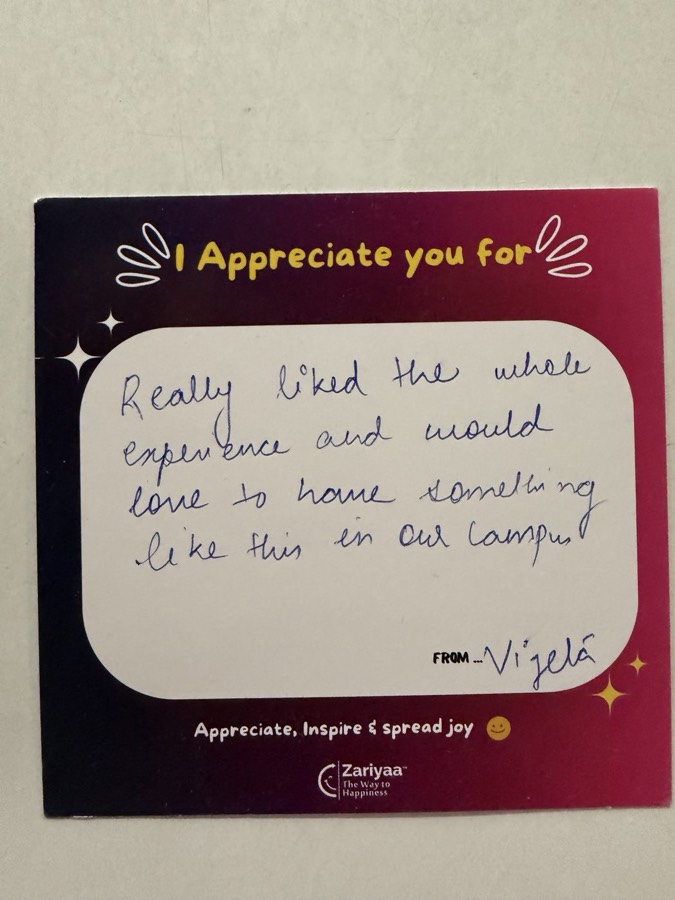 I Appreciate you for
Really liked the whole
experience and would
love to have something
like this in our campus
FROM ... Vijeta
Appreciate, Inspire & spread joy
Zariyaa™
The Way to
Happiness